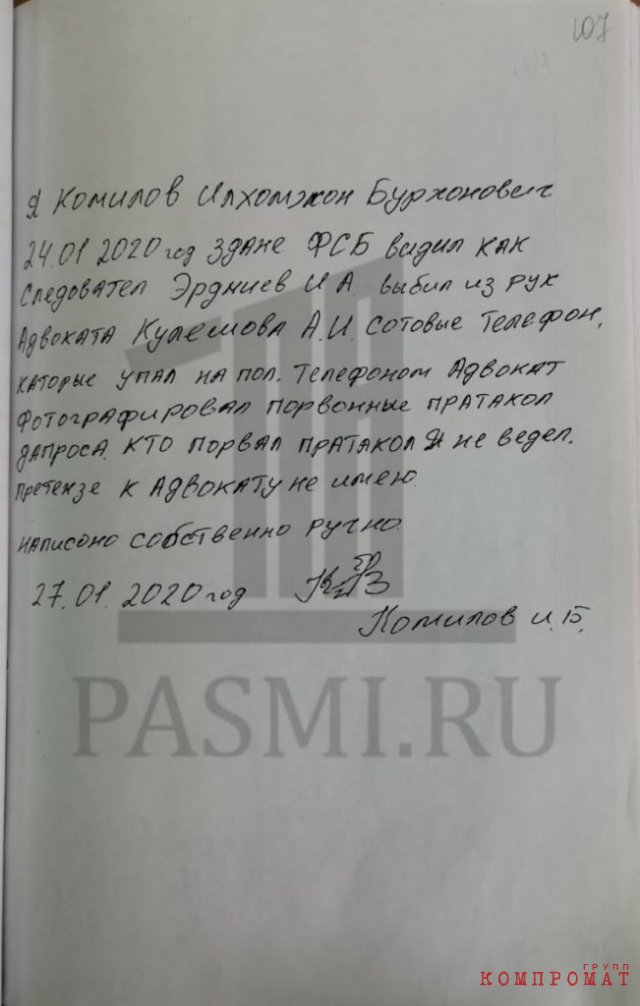 107
Я Комилов Илхомжон Бурхонович
24.01 2020 год здане ФСБ видил как
Следовател Эрдниев И А. выбил из рук
Адвоката Кулешова А.И. сотовые телефон,
каторые упал на пол. Телефоном Адвокат
Фотографировал порвонные пратакол
дапроса. Кто порвал пратакол Я не ведел.
Претензе к Адвокату не имею.
написоно собственно ручно.
27.01. 2020 год
Комилов И.Б.
PASMI.RU
ГРУПП
КОМПРОМАТ